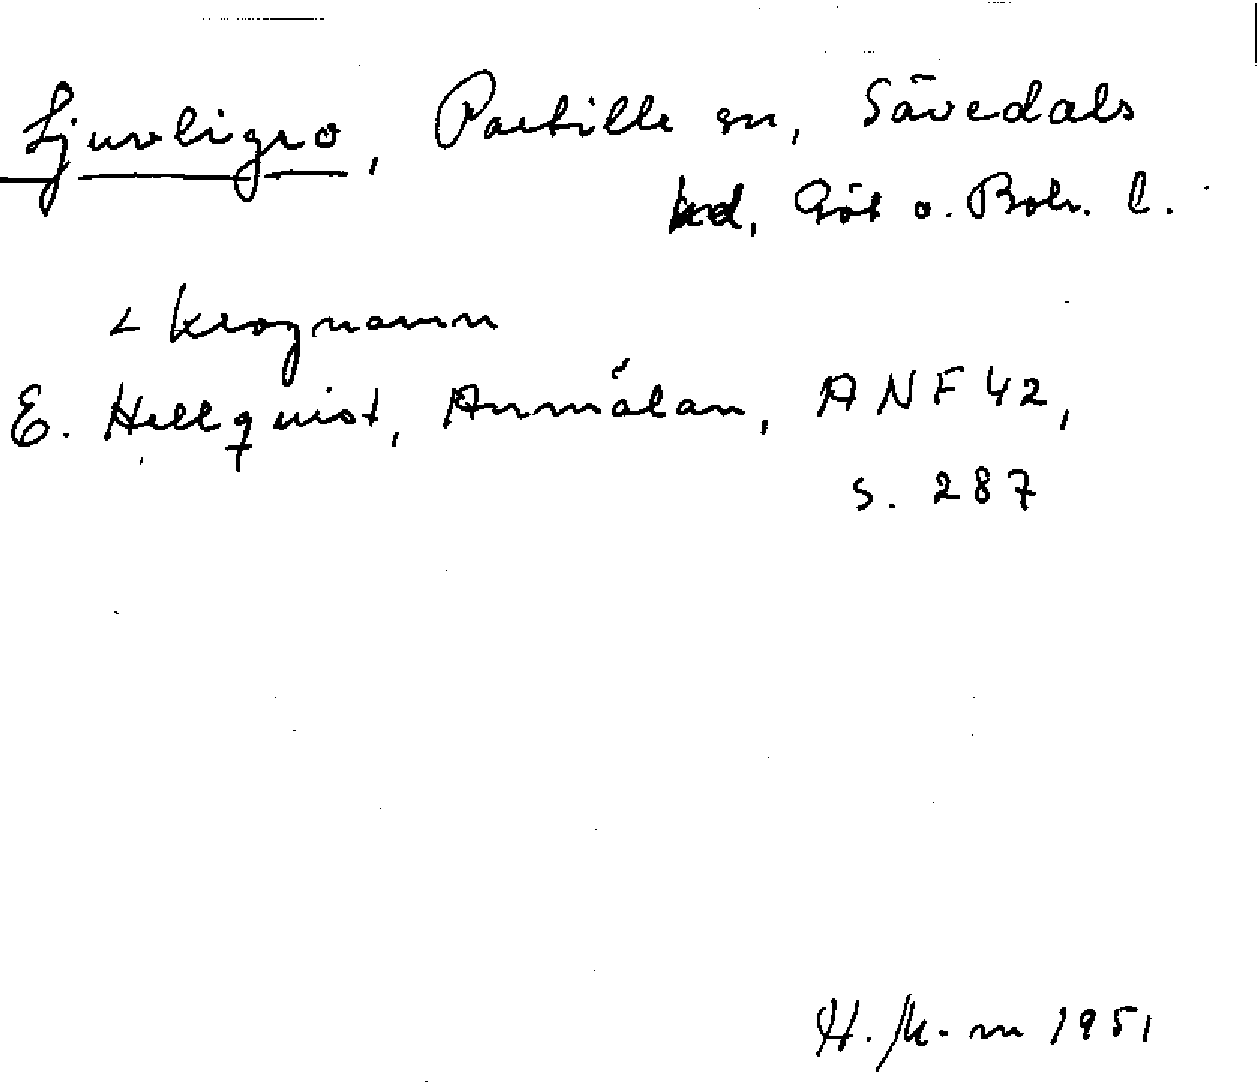 Ljuvligro, Partille sn, Sävedals
hd, Göt o. Boh. l.
< krognamn
E. Hellquist, Anmälan, ANF 42,
s. 287
1951